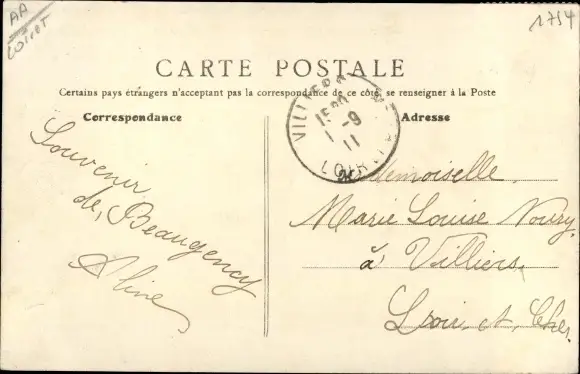 AA
Loiret
1754
CARTE POSTALE
Certains pays étrangers n'acceptant pas la correspondance de ce côté, se renseigner à la Poste
Correspondance
Souvenir
de Beaugency
Aline
VILLIERS
15
1-9
11
LOIR
Adresse
Mademoiselle
Marie Louise Noury
à Villiers
Loir et Cher